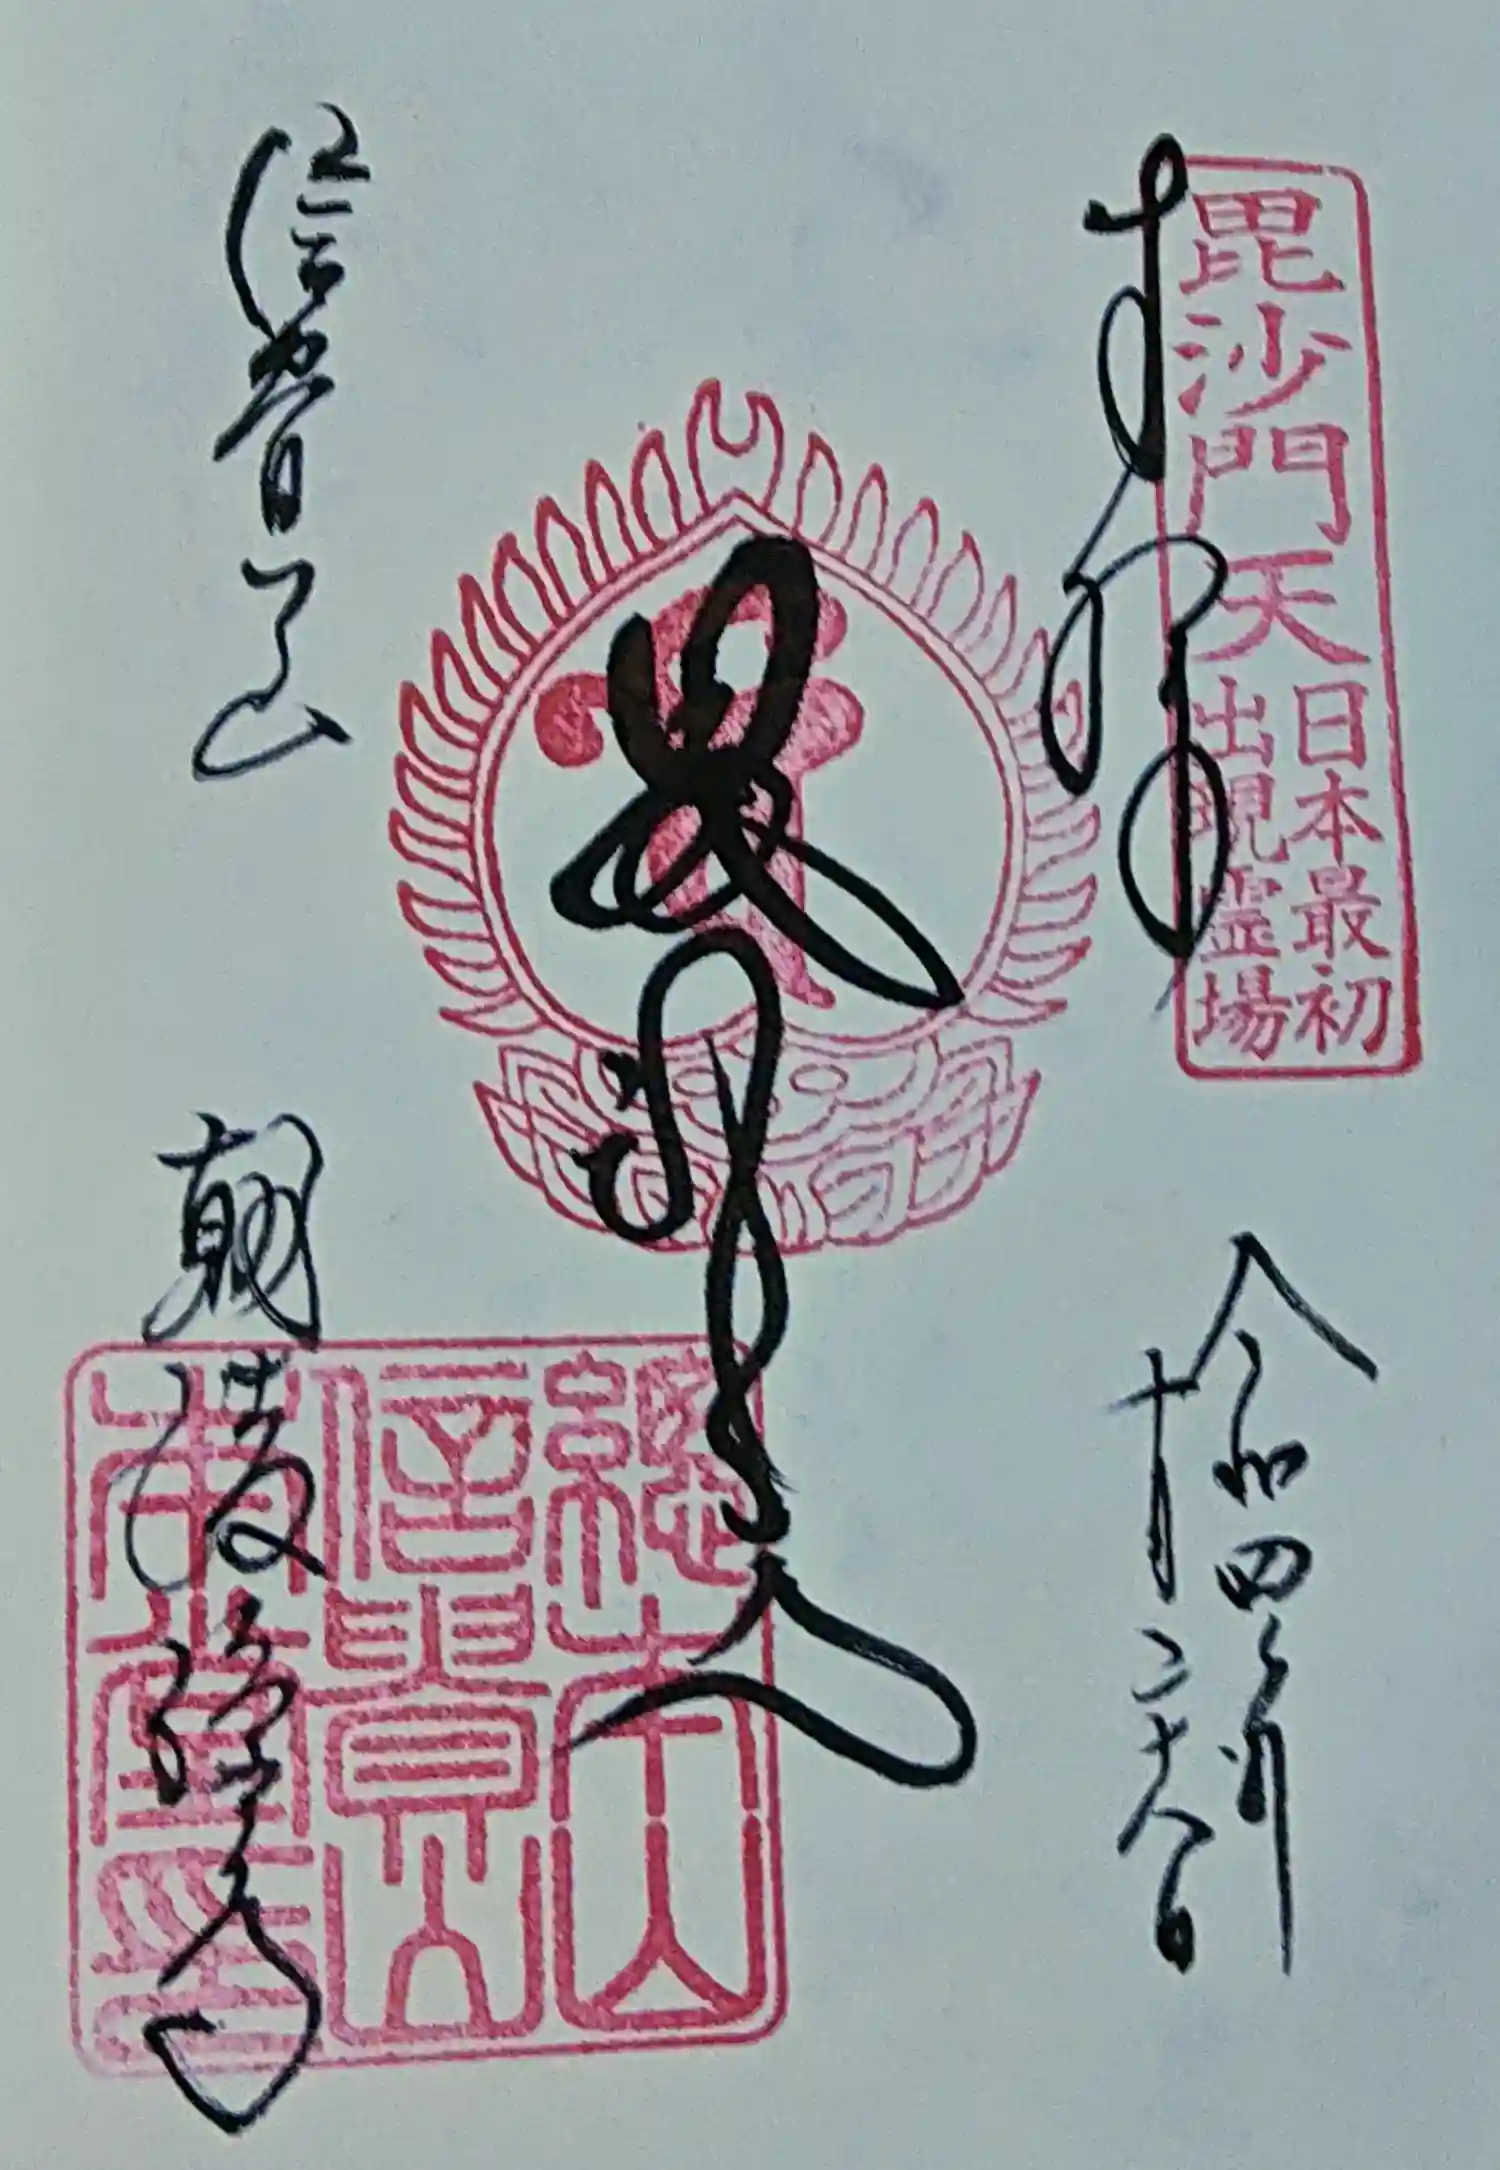 奉拝
毘沙門天
日本最初
出現霊場
令和四年
毘沙門天
信貴山
朝護孫子寺
總本山
信貴山
本堂印